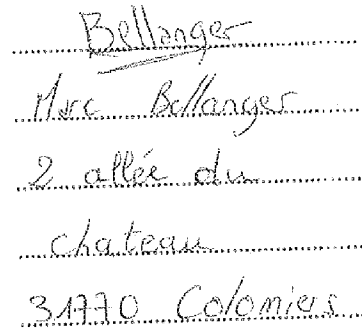 Bellanger
Marc Bellanger
2 allée du
chateau
31770 Colomiers